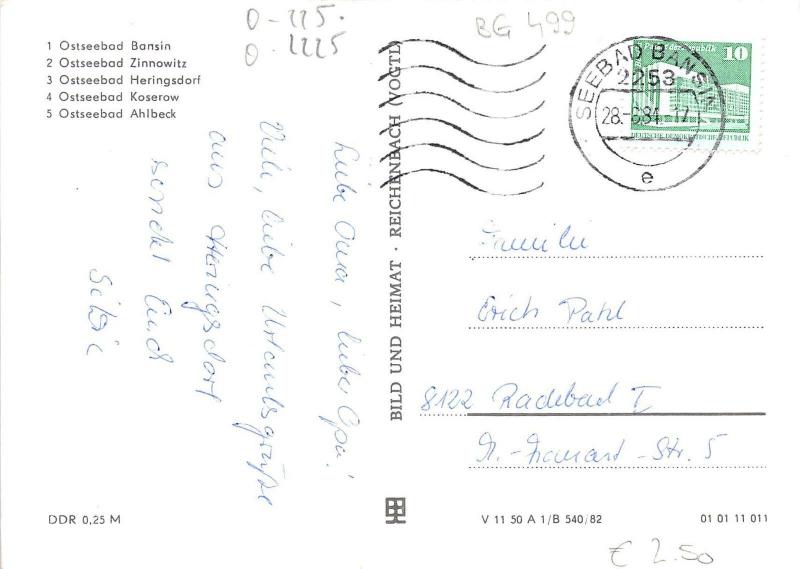 1 Ostseebad Bansin
2 Ostseebad Zinnowitz
3 Ostseebad Heringsdorf
4 Ostseebad Koserow
5 Ostseebad Ahlbeck
0-115.
0.1115
BG 499
Palast der Republik 10
DEUTSCHE DEMOKRATISCHE REPUBLIK
SEEBAD BANSIN
2253
28.-6.84.-17
e
Liebe Oma, lieber Opa!
Viele, liebe Urlaubsgrüße
aus Heringsdorf
sendet Euch
BILD UND HEIMAT · REICHENBACH (VOGTL)
Familie
Erich Pahl
8122 Radebeul I
Str. 5
DDR 0,25 M
V 11 50 A 1/B 540/82
01 01 11 011
€ 2.50